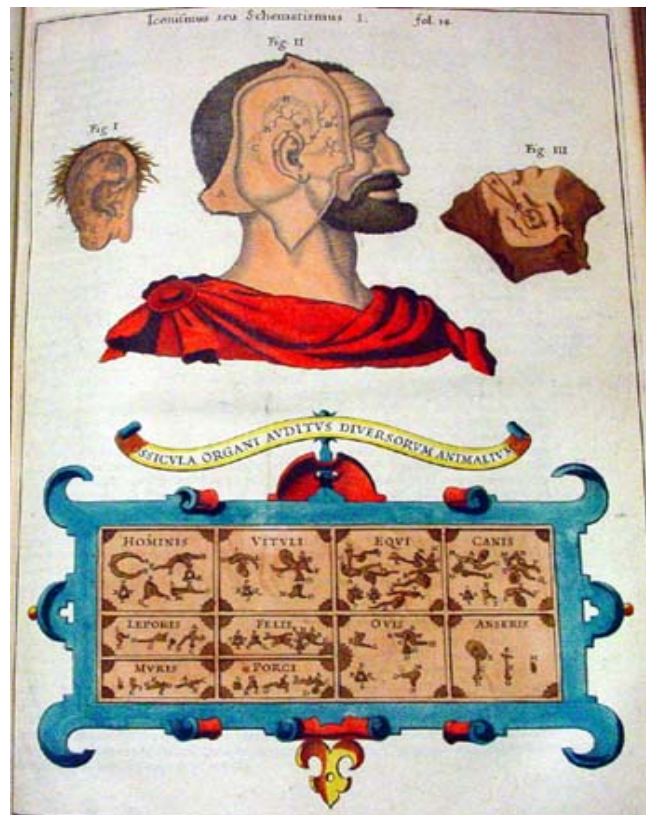 Iconismus seu Schematismus I. fol. 14
Fig. II
Fig. I
Fig. III
SSICVLA ORGANI AVDITVS DIVERSORVM ANIMALIVM
HOMINIS VITVLI EQVI CANIS
LEPORIS FELIS OVIS ANSERIS
MVRIS PORCI